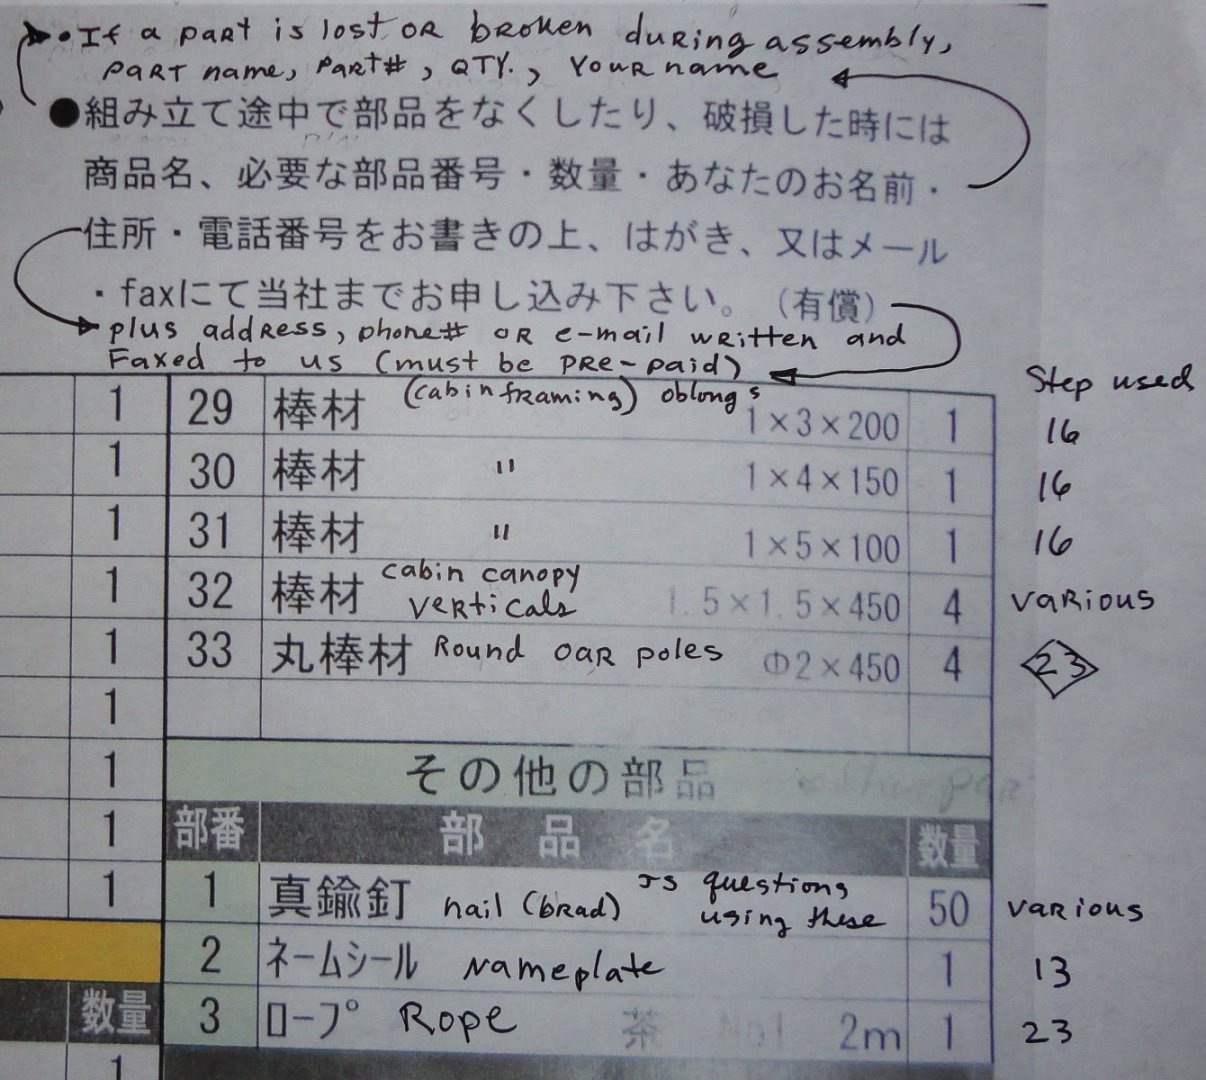 • If a part is lost or broken during assembly,
part name, part#, QTY., your name
●組み立て途中で部品をなくしたり、破損した時には
商品名、必要な部品番号・数量・あなたのお名前・
住所・電話番号をお書きの上、はがき、又はメール
・faxにて当社までお申し込み下さい。(有償)
plus address, phone# or e-mail written and
Faxed to us (must be pre-paid)
Step used
1 29 棒材 (cabin framing) oblongs 1×3×200 1 16
1 30 棒材 " 1×4×150 1 16
1 31 棒材 " 1×5×100 1 16
1 32 棒材 cabin canopy verticals 1.5×1.5×450 4 various
1 33 丸棒材 Round oar poles Φ2×450 4 23
1
1 その他の部品
1 部番 部品名 数量
1 1 真鍮釘 nail (brad) JS questions using these 50 various
2 ネームシール Nameplate 1 13
数量 3 ロープ Rope 茶 No1 2m 1 23
1